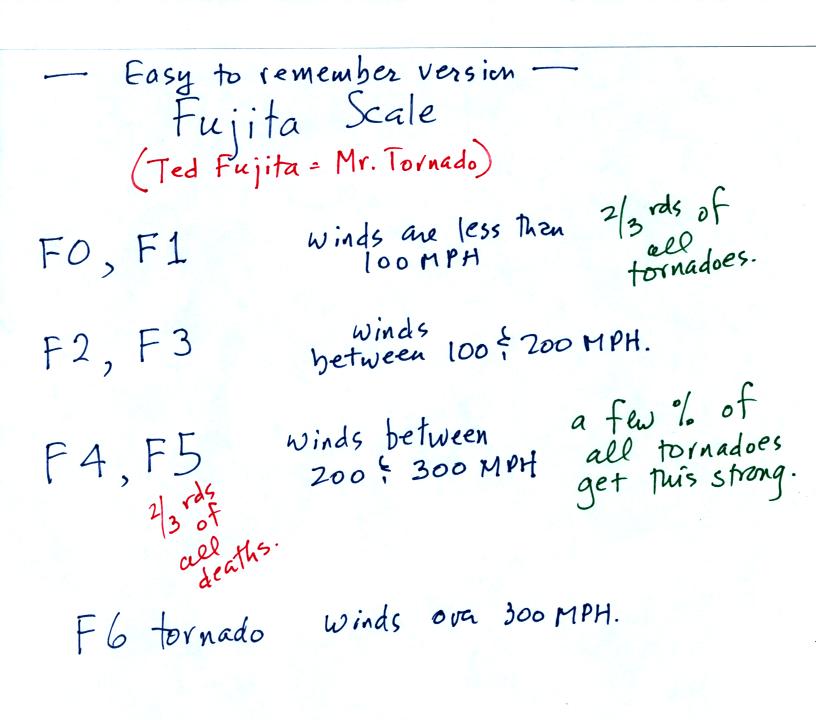 — Easy to remember version —
Fujita Scale
(Ted Fujita = Mr. Tornado)
F0, F1
winds are less than
100 MPH
2/3 rds of
all
tornadoes.
F2, F3
winds
between 100 & 200 MPH.
F4, F5
2/3 rds
of
all
deaths.
winds between
200 & 300 MPH
a few % of
all tornadoes
get this strong.
F6 tornado winds over 300 MPH.